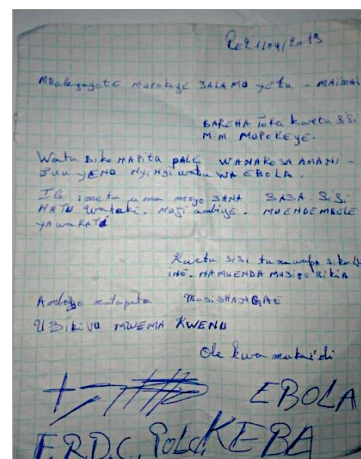 Le 21/04/2019
MUPOKEYE SALAMU yetu - MAIMAI
BAREHA Toka kwetu SISI
M.M. MUPOKEYE.
Watu BiKo NAPita PALE WANAKOSA AMANI -
Juu yENU Nyingi watu WA EBOLA.
Ile imetu uma moyo SANA SASA SiSi
HATU Wataki. MuJi ambiyE. MUENDEMBELE
YA WAKATi
Kwetu SiSi tunawapa siku
INE. NA MUENDA MUSIPO SIKIA
Ambayo mutapata MUSiSHANGAE
USiKiVU MWEMA KWENU
Ole kwa mukaidi
EBOLA
F.RD.C. Polc. KEBA